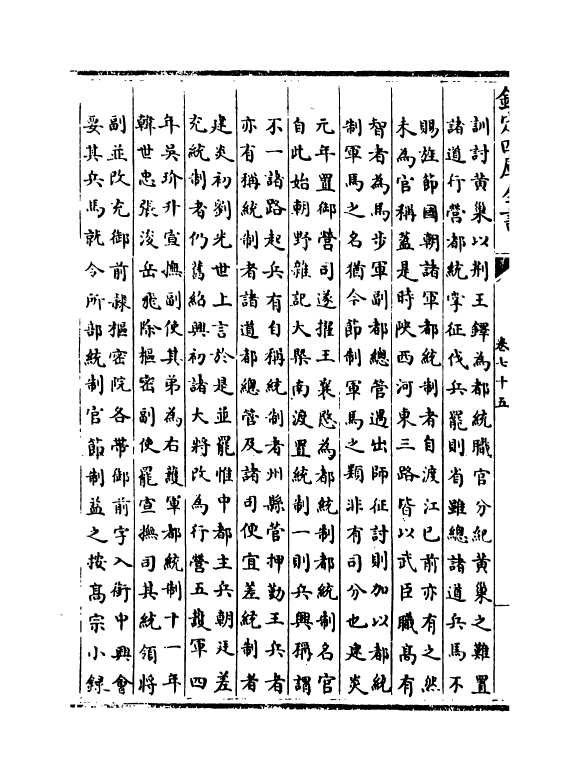 欽定四庫全書
卷七十五
訓討黄巢以荆王鐸為都統職官分紀黄巢之難置
諸道行營都統掌征伐兵罷則省雖總諸道兵馬不
賜旌節國朝諸軍都統制者自渡江已前亦有之然
未為官稱蓋是時陜西河東三路皆以武臣職髙有
智者為馬步軍副都總管遇出師征討則加以都統
制軍馬之名猶今節制軍馬之類非有司分也建炎
元年置御營司遂擢王襄愍為都統制都統制名官
自此始朝野雜記大槩南渡置統制一則兵興稱謂
不一諸路起兵有自稱統制者州縣管押勤王兵者
亦有稱統制者諸道都總管及諸司使宜差統制者
建炎初劉光世上言於是並罷惟中都主兵朝廷差
充統制者仍舊紹興初諸大將改為行營五䕶軍四
年吳玠升宣撫副使其弟為右䕶軍都統制十一年
韓世忠張浚岳飛除樞密副使罷宣撫司其統領將
副並改充御前隸樞密院各帶御前字入銜中興會
要其兵馬就令所部統制官節制益之按髙宗小録